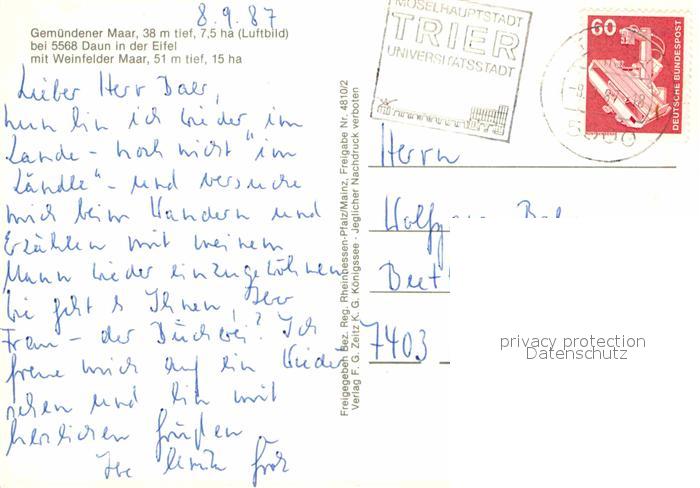 8.9.87
Gemündener Maar, 38 m tief, 7,5 ha (Luftbild)
bei 5568 Daun in der Eifel
mit Weinfelder Maar, 51 m tief, 15 ha
Lieber Herr
nun bin ich wieder im
Lande - noch nicht "im
Ländle" - und versuche
mich beim Wandern und
Erzählen mit meinem
Mann wieder einzugewöhnen
Wie geht es Ihnen, Ihrer
Frau - der Bücherei? Ich
freue mich auf ein Wieder
sehen und bin mit
herzlichen Grüßen
Ihre
Freigegeben Bez. Reg. Rheinhessen-Pfalz/Mainz, Freigabe Nr. 4810/2
Verlag F. G. Zeitz K. G. Königssee · Jeglicher Nachdruck verboten
MOSELHAUPTSTADT
TRIER
UNIVERSITÄTSSTADT
60
DEUTSCHE BUNDESPOST
Herrn
7403
privacy protection
Datenschutz